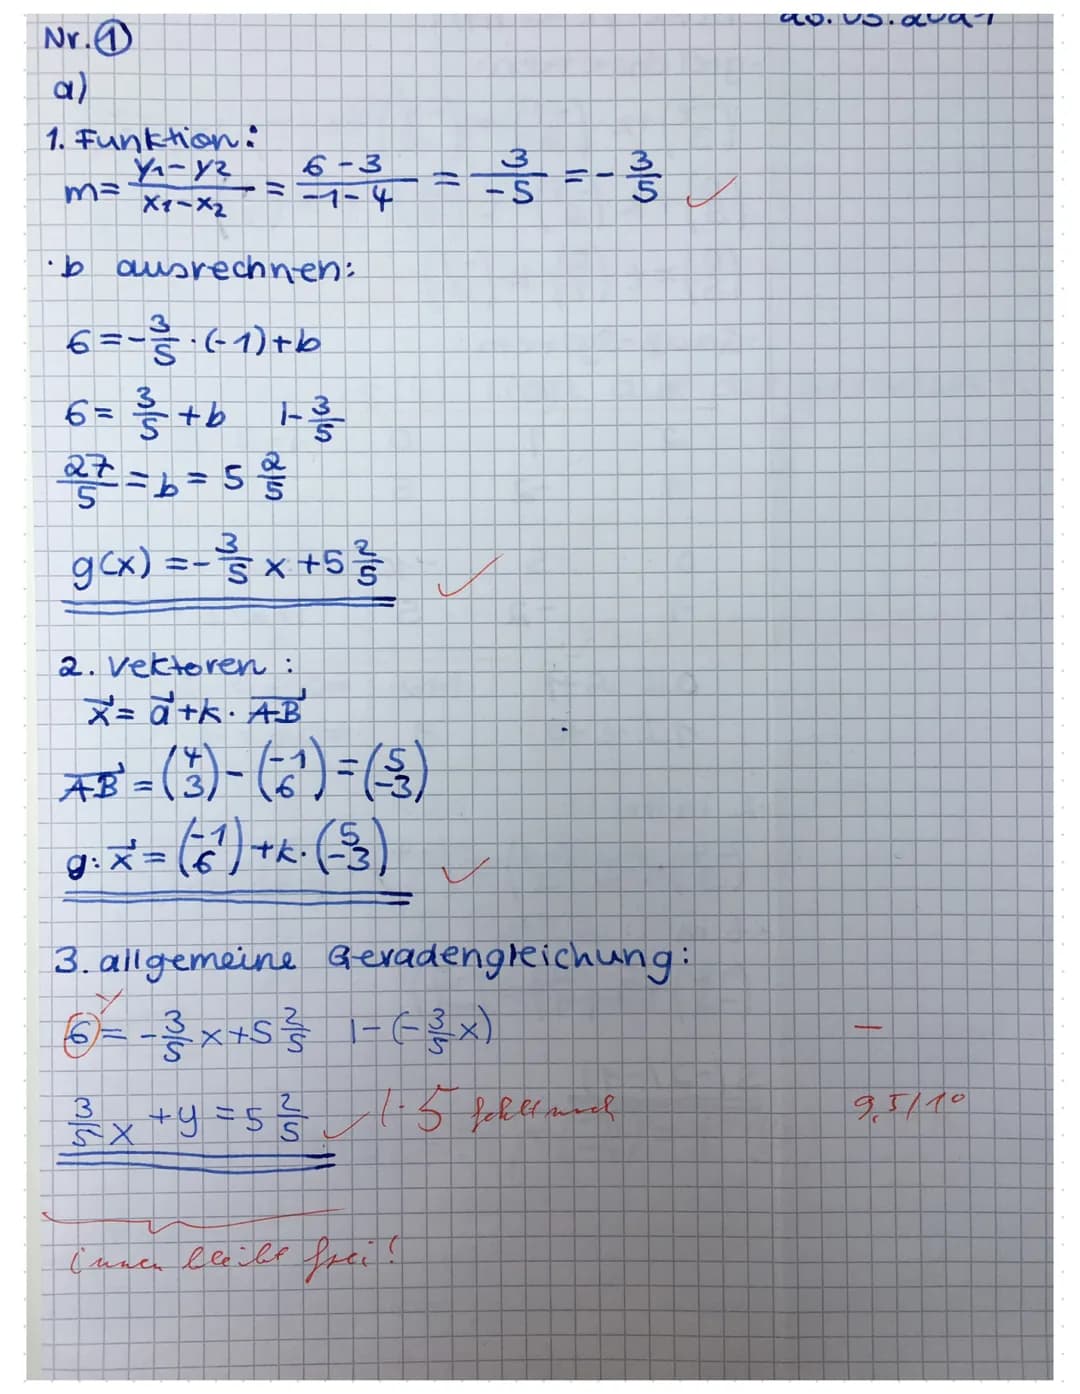 Nr. ①
a)
1. Funktion:
m = (y₁ - y₂)/(x₁ - x₂) = (6 - 3)/(-1 - 4) = 3/-5 = - 3/5 ✓
· b ausrechnen:
6 = - 3/5 · (-1) + b
6 = 3/5 + b |- 3/5
27/5 = b = 5 2/5
g(x) = - 3/5 x + 5 2/5 ✓
2. Vektoren :
x⃗ = a⃗ + k · AB⃗
AB⃗ = (4 3) - (-1 6) = (5 -3)
g: x⃗ = (-1 6) + k · (5 -3) ✓
3. allgemeine Geradengleichung:
y
6 = - 3/5 x + 5 2/5 |- (- 3/5 x) —
3/5 x + y = 5 2/5 ✓ |·5 fehlt noch 9,5/10
innen bleibt frei!